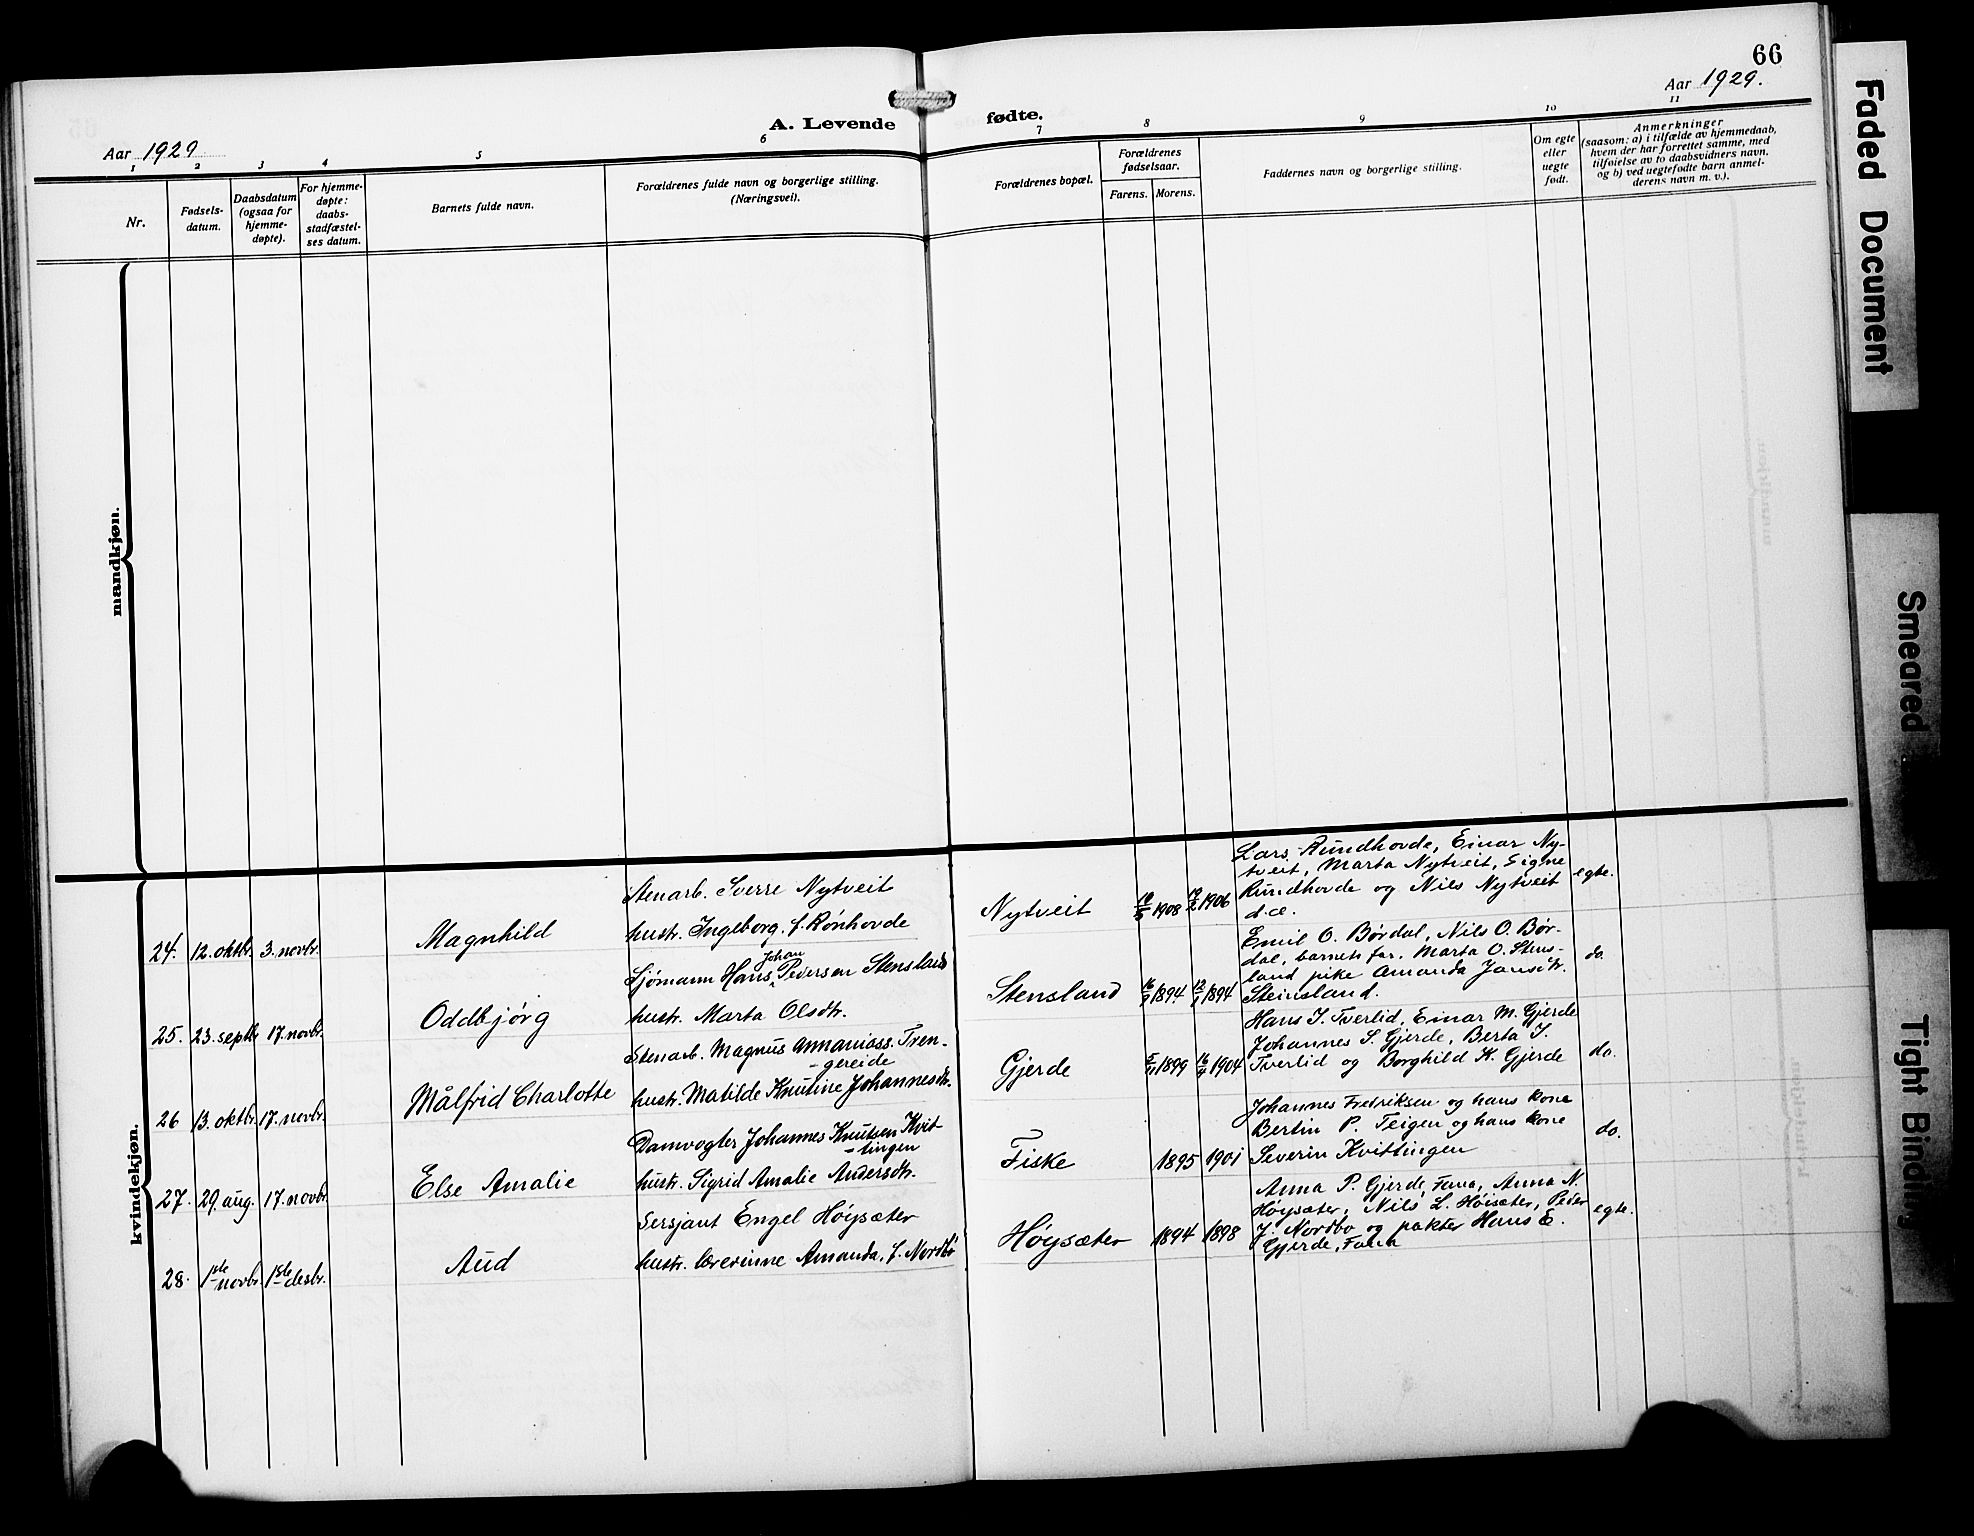 66
Aar 1929.
Aar 1929
A. Levende fødte.
1 2 3 4 5 6 7 8 9 10 11
Nr.
Fødsels-
datum.
Daabsdatum
(ogsaa for
hjemme-
døpte).
For hjemme-
døpte:
daabs-
stadfæstel-
ses datum.
Barnets fulde navn.
Forældrenes fulde navn og borgerlige stilling.
(Næringsvei).
Forældrenes bopæl.
Forældrenes
fødselsaar.
Farens. Morens.
Faddernes navn og borgerlige stilling.
Om egte
eller
uegte
født.
Anmerkninger
(saasom: a) i tilfælde av hjemmedaab,
hvem der har forrettet samme, med
tilføielse av to daabsvidners navn.
og b) ved uegtefødte barn anmel-
derens navn m. v.).
mandkjøn.
kvindekjøn.
24. 12. oktbr. 3. novbr. Magnhild
Stenarb. Sverre Nytveit
hustr. Ingeborg, f. Rønhovde
Nytveit 1908 1906
Lars Rundhovde, Einar Ny-
tveit, Marta Nytveit, Signe
Rundhovde og Nils Nytveit
d.æ.
egte.
25. 23. septbr 17. novbr. Oddbjørg
Sjømann Hans Johan Pedersen Stensland
hustr. Marta Olsdtr.
Stensland 1894 1894
Emil O. Børdal, Nils O. Bør-
dal, barnets far, Marta O. Stens-
land pike Amanda Jansdtr.
Steinsland.
do.
26 13. oktbr. 17. novbr. Målfrid Charlotte
Stenarb. Magnus Annaniass. Tren-
-gereide
hustr. Matilde Knutine Johannesdtr.
Gjerde 1899 1904
Hans J. Tverlid, Einar M. Gjerde
Johannes S. Gjerde, Berta J.
Tverlid og Borghild K. Gjerde
do.
27. 29. aug. 17. novbr. Else Amalie
Damvogter Johannes Knutsen Kvit-
-tingen
hustr. Sigrid Amalie Andersdtr.
Fiske 1895 1901
Johannes Fredriksen og hans kone
Bertin P. Teigen og hans kone
Severin Kvittingen
do.
28. 1ste novbr. 1ste desbr. Aud
Sersjant Engel Høysæter
hustr. lærerinne Amanda, f. Nordbø
Høysæter 1894 1898
Anna P. Gjerde, Fana, Anna N.
Høysæter, Nils L. Høisæter, Peder
J. Nordbø og pakter Hans E.
Gjerde, Fana
egte.
Faded Document
Smeared
Tight Binding